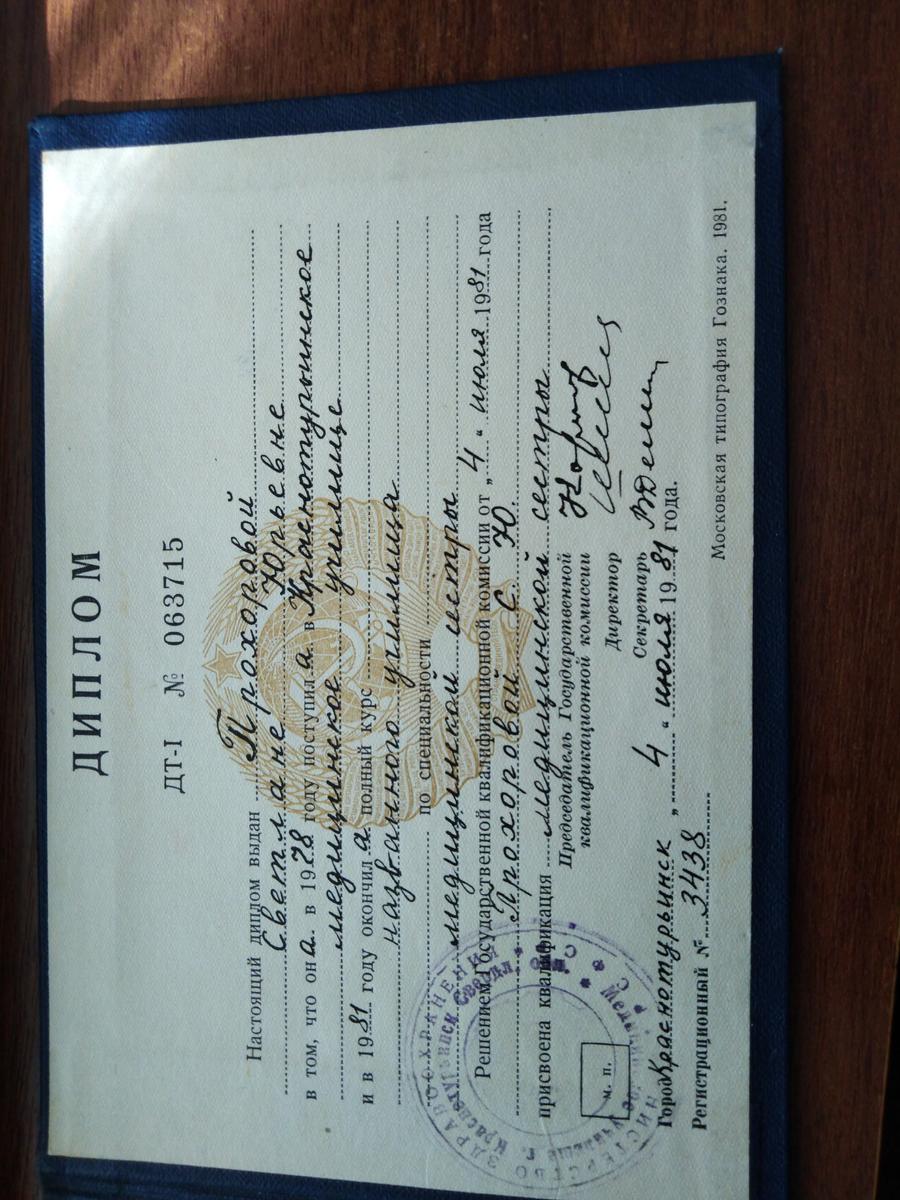 ДИПЛОМ
ДТ-I № 063715
Настоящий диплом выдан Прохоровой
Светлане Юрьевне
в том, что она в 1978 году поступила в Краснотурьинское
медицинское училище
и в 1981 году окончила полный курс
названного училища
по специальности
медицинской сестры
Решением Государственной квалификационной комиссии от „4“ июля 1981 года
Прохоровой С. Ю.
присвоена квалификация медицинской сестры
Председатель Государственной
квалификационной комиссии
Директор
Секретарь
Город Краснотурьинск „4“ июля 1981 года.
Регистрационный № 3438
Московская типография Гознака. 1981.
м. п.
МИНИСТЕРСТВО ЗДРАВООХРАНЕНИЯ
училище г. Краснотурьинск Свердл.